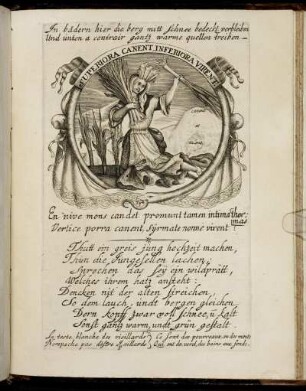 In bädern hier die berg mitt schnee bedeckt verbleibē
Und unten a contrair gantz warme quellen treiben
SUPERIORA CANENT, INFERIORA VIRENT
En nive mons candet promunt tamen intima thermas
Vertice porra canent, Syrmate nonne virent?
Thutt ein greis jung hochzeit machen,
Thun die Jungesellen lachen,
Sprechen das sey ein wildprätt,
Welches ihren hatz ansteht:
Dencken nit der alten streichen,
So dem lauch, undt bergen gleichen,
Dern Kopff zwar voll schnee, u. kalt
Sonst gantz warm, undt grün gestalt.
La teste blanche des vieillards